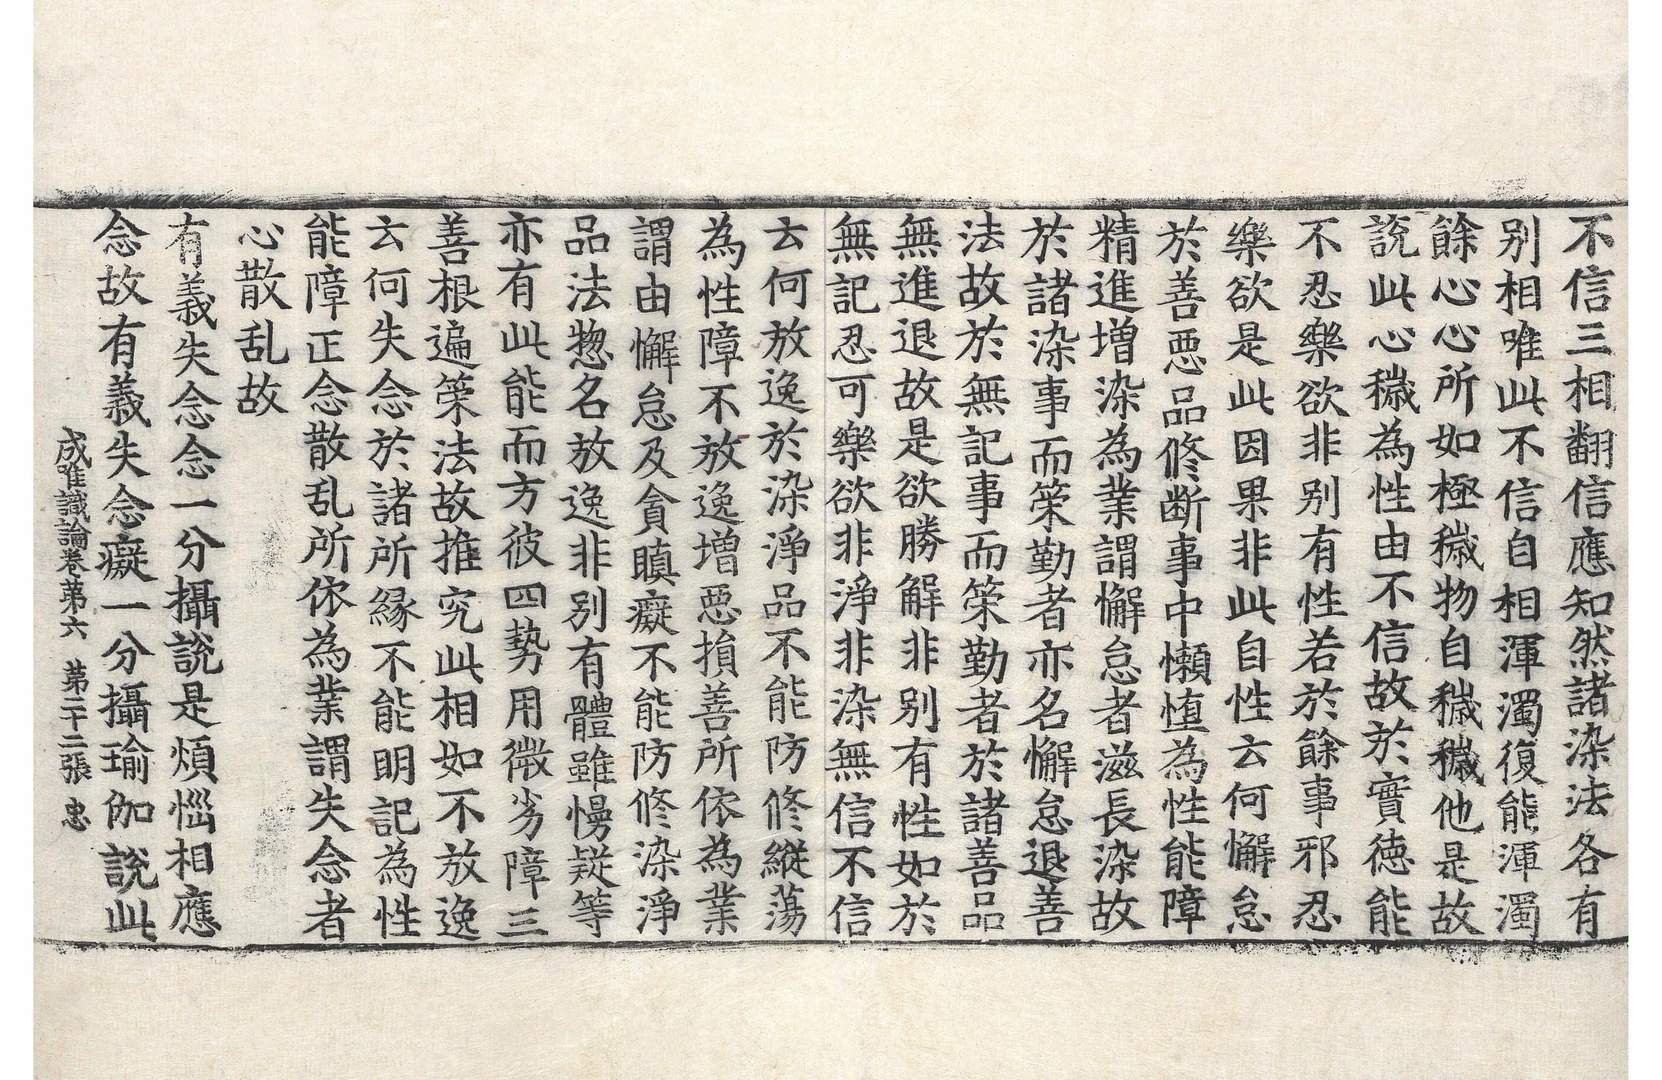 不信三相翻信應知然諸染法各有
别相唯此不信自相渾濁復能渾濁
餘心心所如極穢物自穢穢他是故
說此心穢為性由不信故於實德能
不忍樂欲非别有性若於餘事邪忍
樂欲是此因果非此自性云何懈怠
於善惡品修断事中懶惰為性能障
精進增染為業謂懈怠者滋長染故
於諸染事而策勤者亦名懈怠退善
法故於無記事而策勤者於諸善品
無進退故是欲勝解非别有性如於
無記忍可樂欲非淨非染無信不信
云何放逸於染淨品不能防修縱蕩
為性障不放逸增惡損善所依為業
謂由懈怠及貪瞋癡不能防修染淨
品法惣名放逸非别有體雖慢疑等
亦有此能而方彼四勢用微劣障三
善根遍策法故推究此相如不放逸
云何失念於諸所緣不能明記為性
能障正念散乱所依為業謂失念者
心散乱故
有義失念念一分攝說是煩惱相應
念故有義失念癡一分攝瑜伽說此
成唯識論卷苐六 苐二十二張 忠